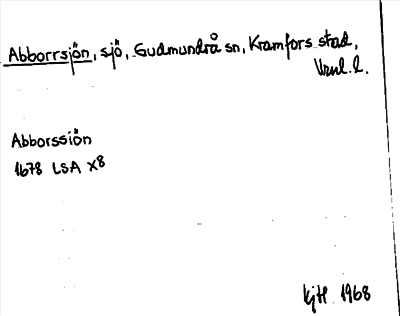 Abborrsjön, sjö, Gudmundrå sn, Kramfors stad,
Vrnl. l.
Abborssiön
1678 LSA X8
KjH 1968